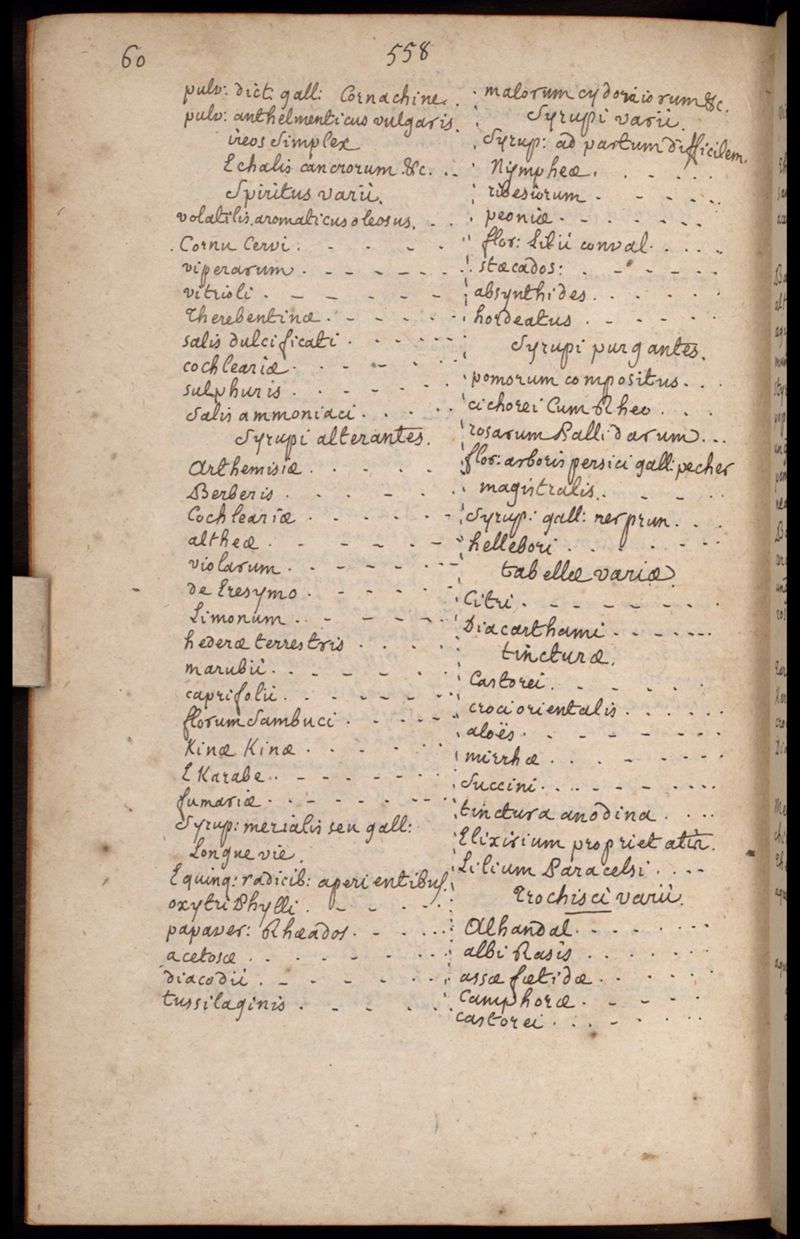 60
558
pulv: dict: gall: Cornachine.
pulv: anthelmenticus vulgaris.
ireos Simplex
E chalis cancrorum &c.
Spiritus varii.
volatilis aromaticus oleosus.
Cornu Cervi.
viperarum
vitrioli
Therebentinæ
salis dulcificati
cochleariæ
sulphuris
Salis ammoniaci
Syrupi alterantes.
Arthemisiæ
Berberis
Cochleariæ
altheæ
violarum
de Eresymo
Limonum
hederæ terrestris
marubii
caprifolii
florum Sambuci
Kinæ Kinæ
E Karabe
fumariæ
Syrup: merialis seu gall:
Longue vie.
E quinq: radicib: aperientibus.
oxytriphylli
papaver: Rhæados
acetosæ
diacodii
tussilaginis
malorum cydoniorum &c.
Syrupi varii.
Syrup: ad partum difficilem.
Nympheæ
ribesiorum
peoniæ
flor: Lilii conval
stæcados:
absynthides
hordeatus
Syrupi purgantes.
pomorum compositus
cichorei Cum Rheo
rosarum Pallidarum
flor: arboris persici gall: pecher
magistralis
Syrup: gall: nerprun
hellebori
tabellæ variæ
Citri
Diacarthami
tincturæ.
Castorei
croci orientalis
aloës
mirrhæ
Succini
tinctura anodina
Elixirium proprietatis.
Lilium Paracelsi
Trochisci varii.
Alhandal
albi Rasis
assæ fœtidæ
Camphoræ
castorei